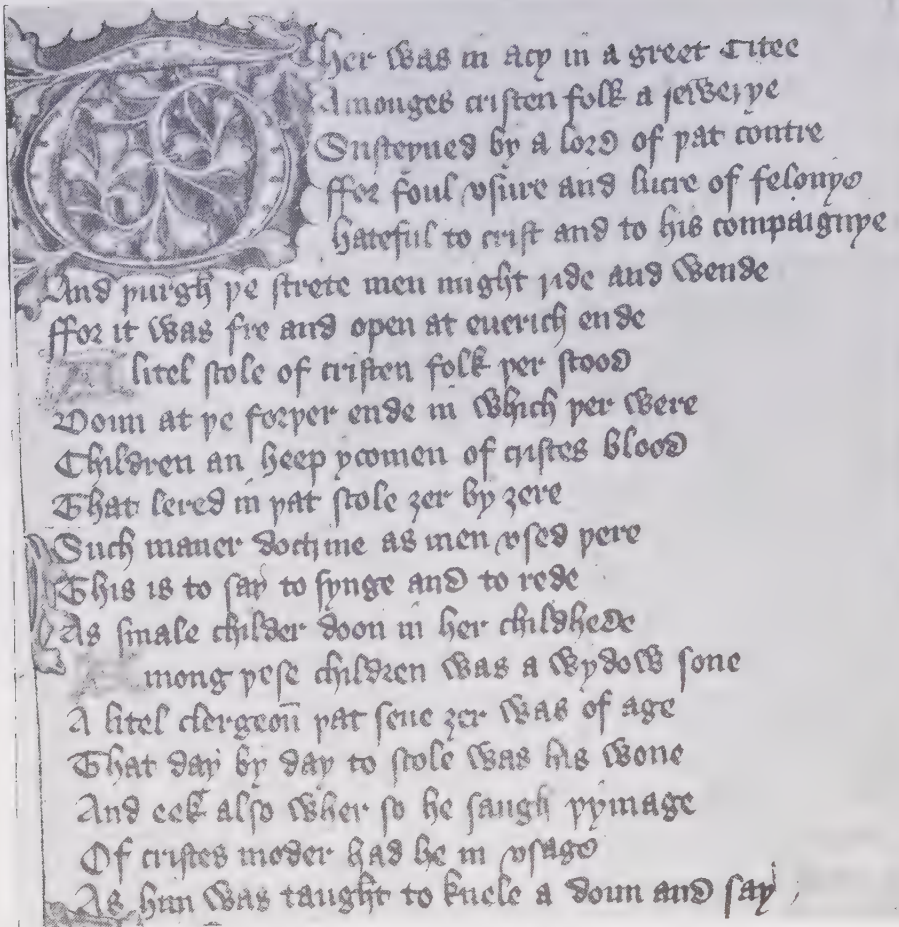 Ther was in acy in a greet Citee
Amonges cristen folk a jewerye
Susteyned by a lord of þat contre
ffor foul vsure and lucre of felonye
hateful to crist and to his compaignye
And þurgh þe strete men might ride and wende
ffor it was fre and open at euerich ende
A litel scole of cristen folk þer stood
Doun at þe forþer ende in which þer were
Children an heep ycomen of cristes blood
That lered in þat scole ȝer by ȝere
Such maner doctrine as men vsed þere
This is to say to synge and to rede
As smale childer doon in her childhede
Among þese children was a wydow sone
A litel clergeoun þat seue ȝer was of age
That day by day to scole was his wone
And eek also wher so he saugh þymage
Of cristes moder had he in vsage
As him was taught to knele a doun and say